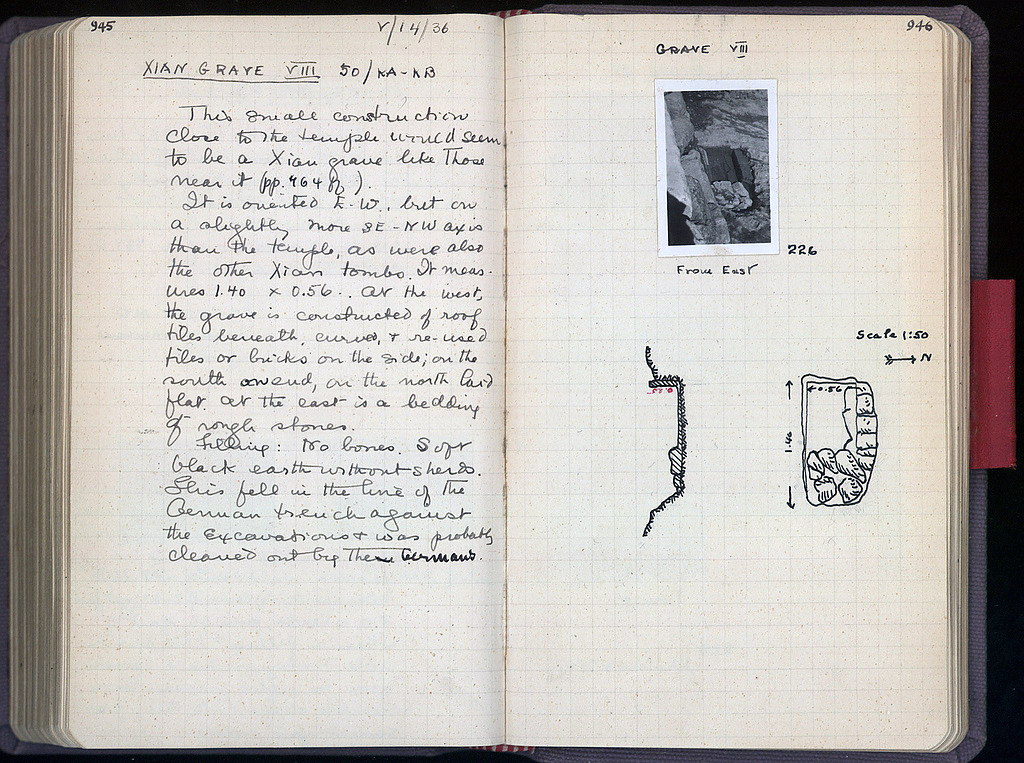 945
V/14/36
XIAN GRAVE VIII 50/KA-KB
This small construction
close to the temple would seem
to be a Xian grave like those
near it (pp. 464 ff).
It is oriented E-W., but on
a slightly more SE-NW axis
than the temple, as were also
the other Xian tombs. It meas-
ures 1.40 x 0.56. At the west,
the grave is constructed of roof
tiles beneath, curved, & re-used
tiles or bricks on the side; on the
south on end, on the north laid
flat. At the east is a bedding
of rough stones.
Filling: No bones. Soft
black earth without sherds.
This fell in the line of the
German trench against
the Excavations & was probably
cleaned out by the Germans.
946
GRAVE VIII
226
From East
Scale 1:50
N
0.56
1.40